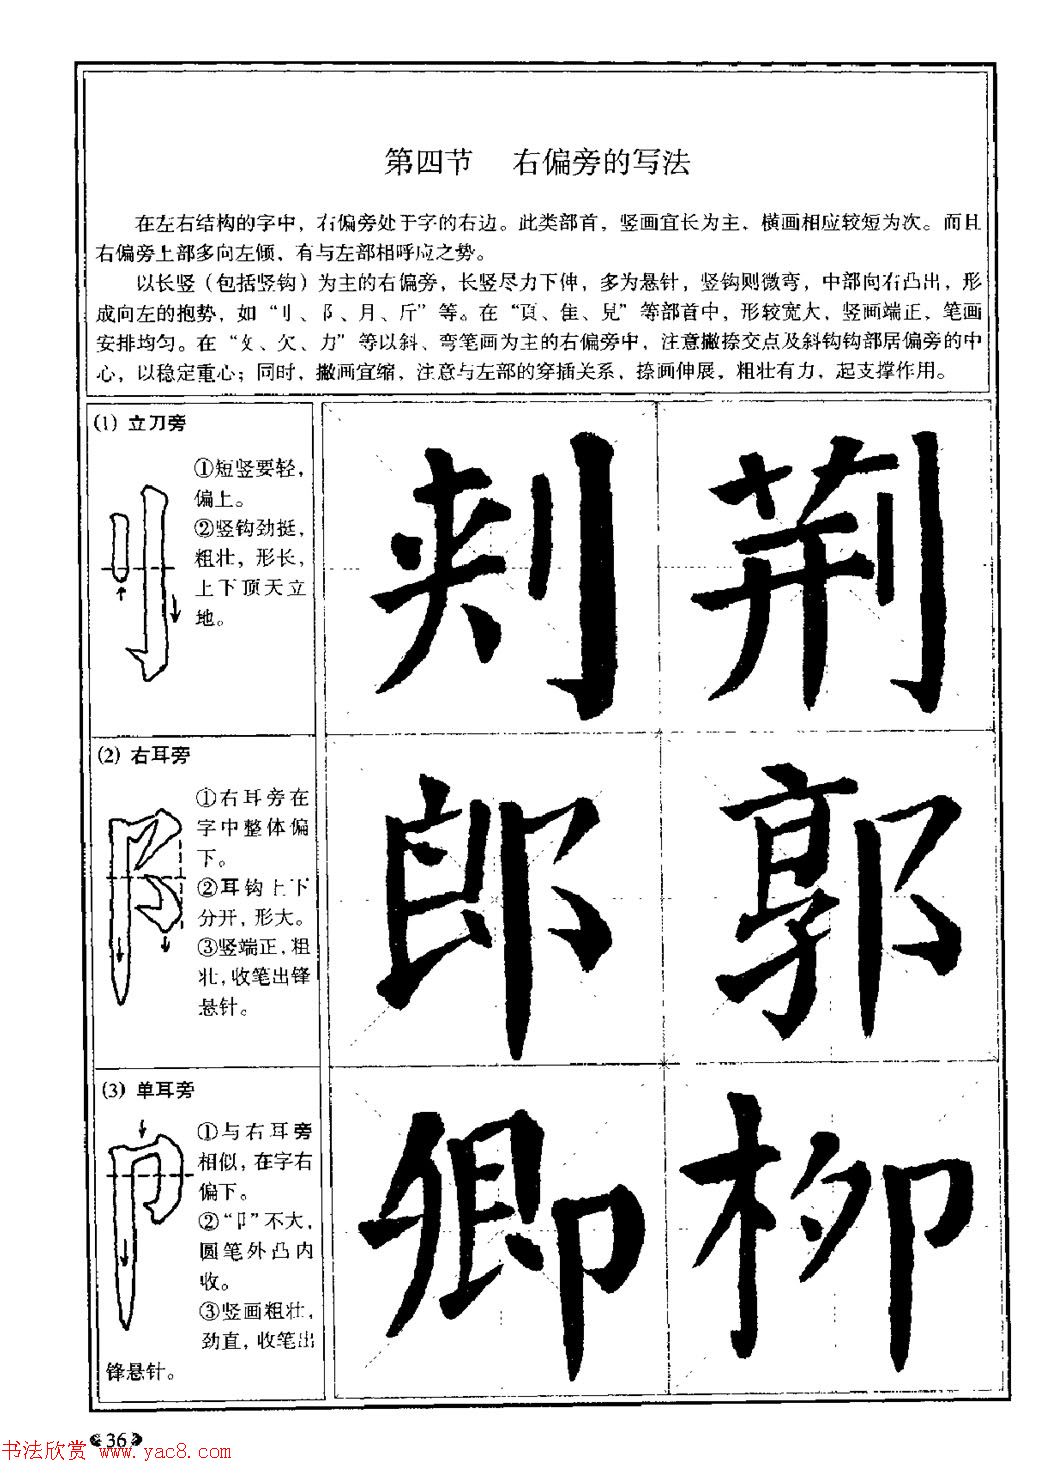 第四节 右偏旁的写法
在左右结构的字中，右偏旁处于字的右边。此类部首，竖画宜长为主，横画相应较短为次。而且
右偏旁上部多向左倾，有与左部相呼应之势。
以长竖（包括竖钩）为主的右偏旁，长竖尽力下伸，多为悬针，竖钩则微弯，中部向右凸出，形
成向左的抱势，如“刂、阝、月、斤”等。在“頁、隹、見”等部首中，形较宽大，竖画端正，笔画
安排均匀。在“攵、欠、力”等以斜、弯笔画为主的右偏旁中，注意撇捺交点及斜钩钩部居偏旁的中
心，以稳定重心；同时，撇画宜缩，注意与左部的穿插关系，捺画伸展，粗壮有力，起支撑作用。
(1) 立刀旁
①短竖要轻，
偏上。
②竖钩劲挺，
粗壮，形长，
上下顶天立
地。
刾 荆
(2) 右耳旁
①右耳旁在
字中整体偏
下。
②耳钩上下
分开，形大。
③竖端正，粗
壮，收笔出锋
悬针。
郎 郭
(3) 单耳旁
①与右耳旁
相似，在字右
偏下。
②“卩”不大，
圆笔外凸内
收。
③竖画粗壮，
劲直，收笔出
锋悬针。
卿 柳
36
书法欣赏 www.yac8.com